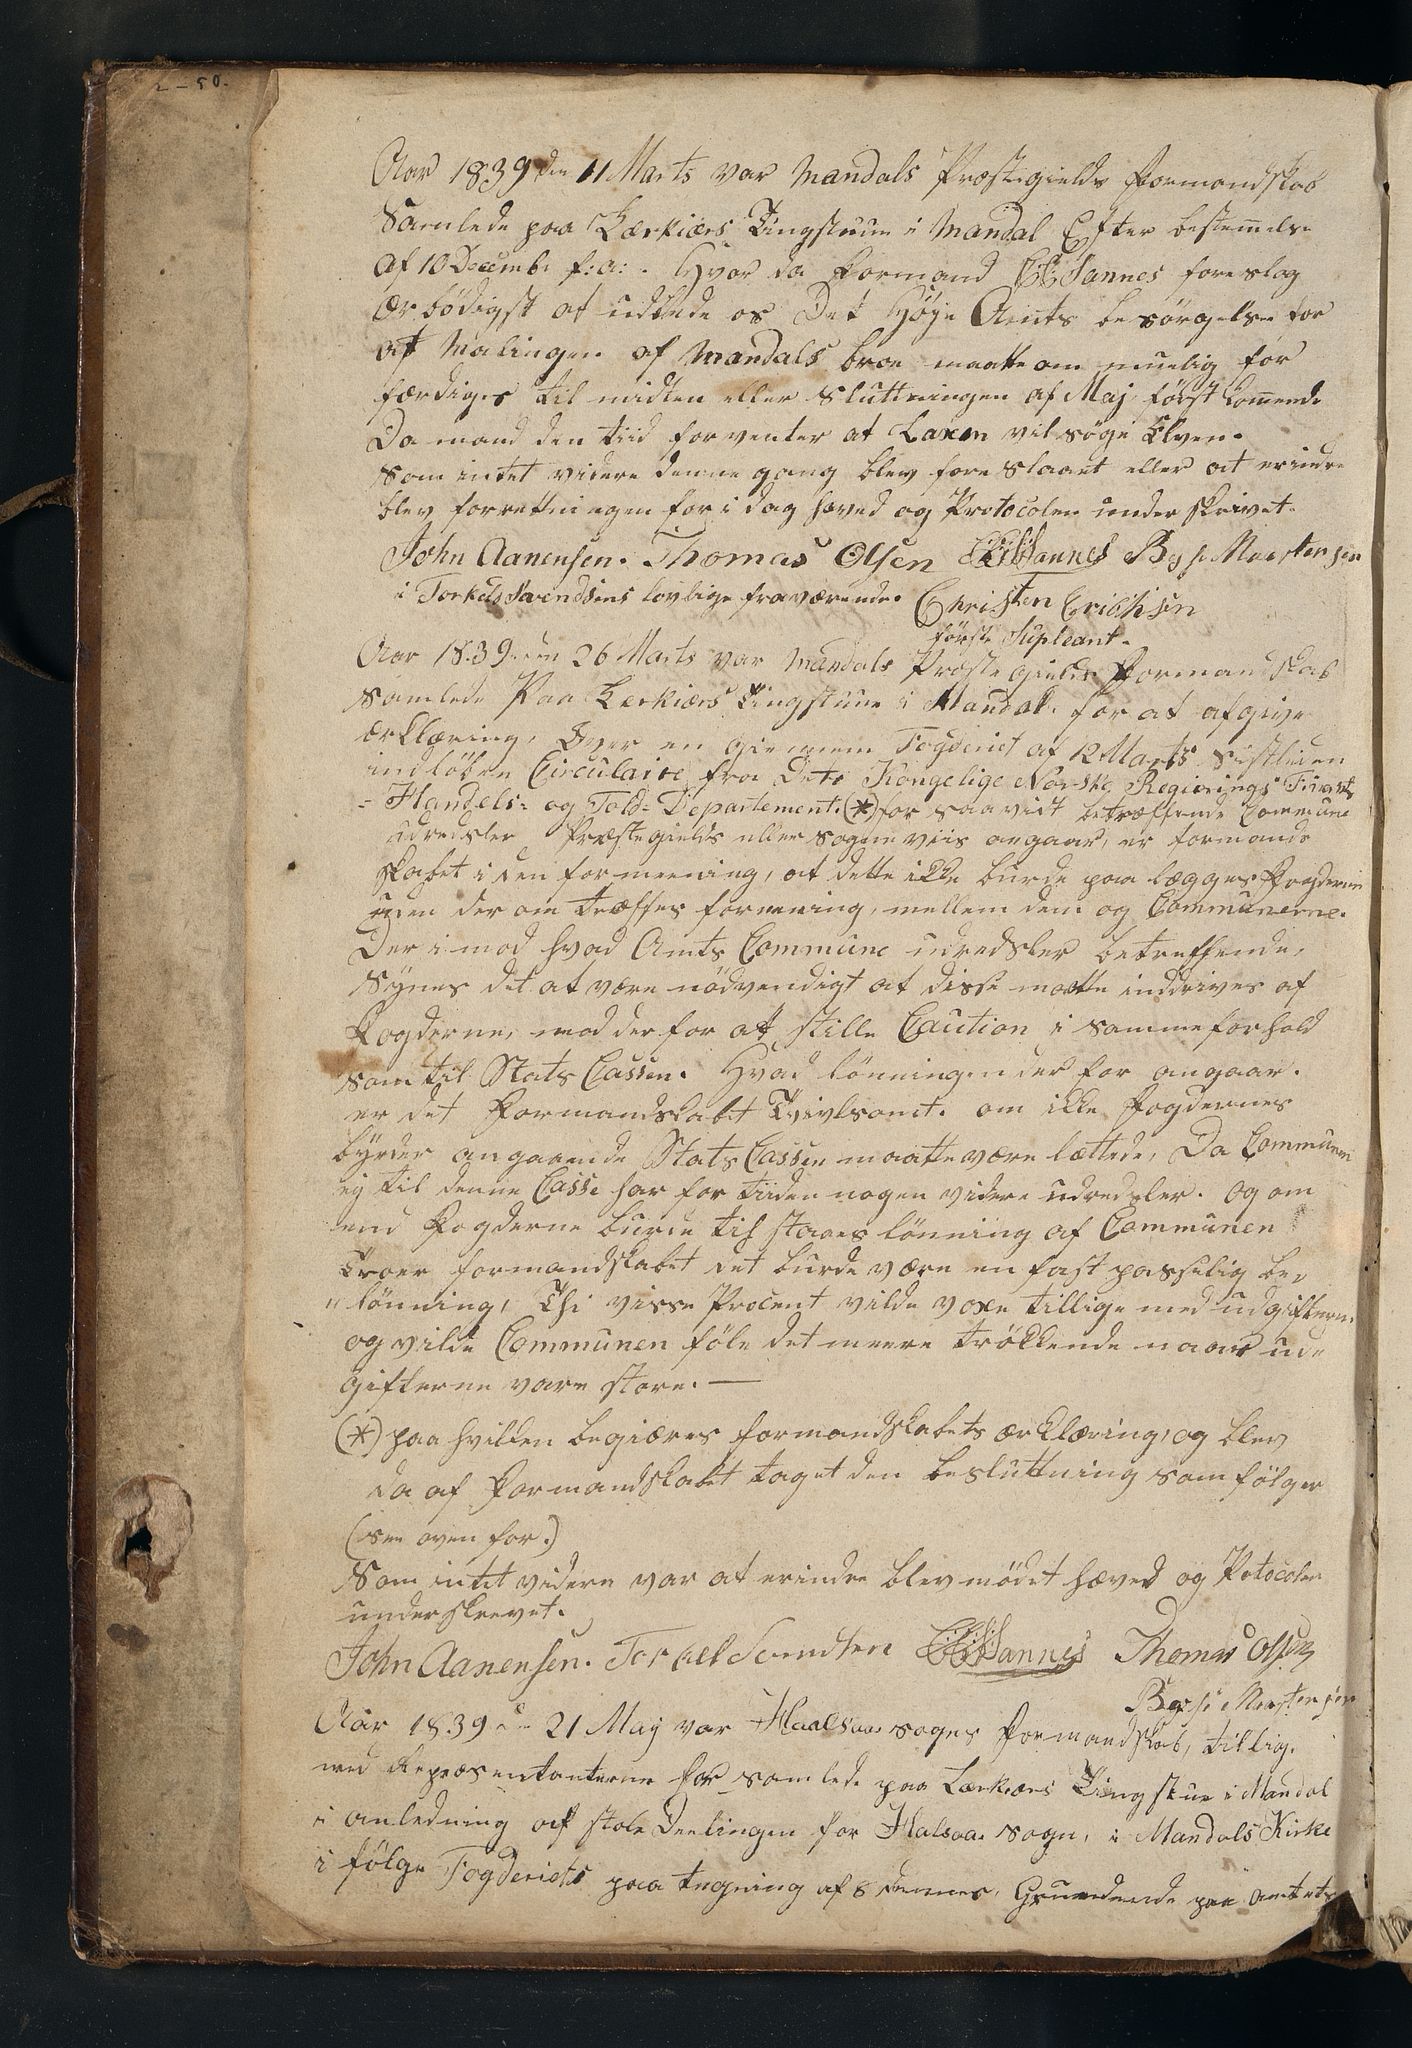 2-50.
Aar 1839 den 11 Marts var Mandals Præstegields Formandskab
Samlede paa Lærkiærs Tingstuue i Mandal Efter bestemmelse
af 10 Decembr f:a: . Hvor da Formand Sannes foreslog
Ærbödigst at udbede os Det Höje Amts besörgelse for
at Malingen af Mandals broe maatte om muelig for
færdiges til midten eller Sluttningen af Maj först kommende
Da mand den tiid forventer at Laxen vil söge Elven.
Som intet videre denne gang blev foreslaaet eller at erindre
blev forrettningen for i dag hæved og Protocolen underskrivet.
John Aanensen. Thomas Olsen Sannes Byse Mortensen
i Torkels Svendsens lovlige fraværende. Christen Erichsen
förste Supleant.
Aar 1839 den 26 Marts var Mandals Præste gields Formandskab
Samlede Paa Lerkiærs Tingstuue i Mandal. for at afgive
ærklæring, Over en giennem Fogderiet af 12 Marts Sistleden
indlöben Circulaire fra Dets Kongelige Norske Regierings Finants
- Handels- og Told-Departement. (*) for saavidt betræffende Commune
udredsler Præstegields eller sogneviis angaar, er formands
skabet i den formeening, at dette ikke burde paa lægges Fogderne
uden der om træffes forening, mellem dem og Communerne.
Der i mod hvad Amts Commune udredsler betreffende,
Synes det at være nödvendigt at disse maatte inddrives af
Fogderne, mod der for at stille Caution i samme forhold
som til Stats Cassen. Hvad lönningen der for angaar.
er det Formandskabet Tvivlsomt. om ikke Fogdernes
byrder angaaende Stats Cassen maatte være lættede, Da Communen
ej til denne Casse har for tiiden nogen videre udredsler. og om
end Fogderne burde til staaes lönning af Communen
Troer formandskabet det burde være en fast passelig be
" lönning, Thi visse Procent vilde voxe tillige med udgifterne.
og vilde Communen föle det meere trökkende naar ud
gifterne vare store. —
(*) paa hvilken begiæres formandskabets ærklæring, og blev
da af Formandskabet taget den besluttning som fölger
(see oven for.)
Som intet videre var at erindre blev mödet hæved og Potocolen
underskrevet.
John Aanensen. Torkel Svendsen Sannes Thomas Olsen
Byse Mortensen
Aar 1839 den 21 Maij var Haalsaa sognes Formandskab, tillige
med Repræsentanterne for samlede paa Lærkiærs Tingstue i Mandal
i anledning af stole Deelingen for Halsaa sogn, i Mandals Kirke
i fölge Fogderiets paa tegning af 8 dennes, Grundende paa Amtets